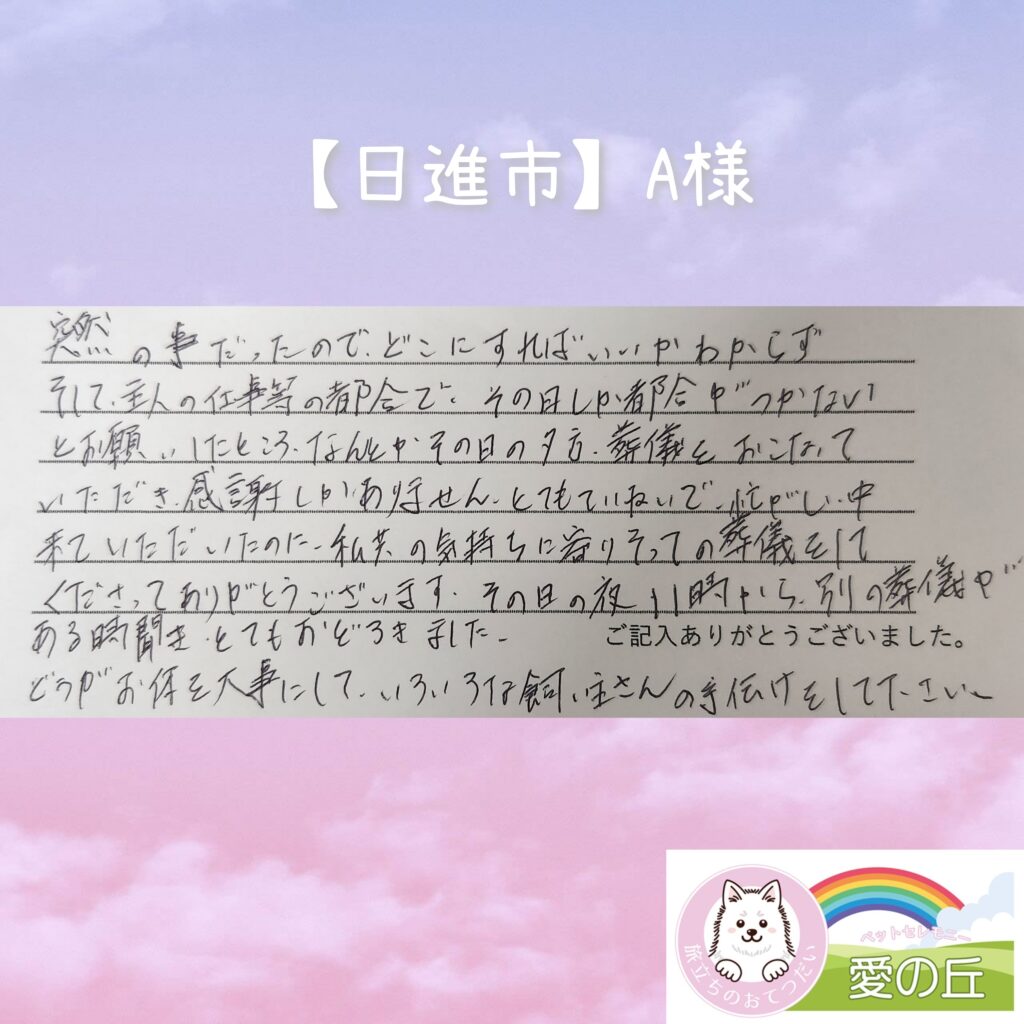 【日進市】A様
突然の事だったので、どこにすればいいかわからず
そして、主人の仕事等の都合で、その日しか都合がつかない
とお願いしたところ、なんとかその日の夕方、葬儀をおこなって
いただき、感謝しかありません、とてもていねいで、忙がしい中
来ていただいたのに、私共の気持ちに寄りそっての葬儀をして
くださってありがとうございます。その日の夜11時から、別の葬儀が
ある時聞き、とてもおどろきました。
ご記入ありがとうございました。
どうかお体を大事にして、いろいろな飼い主さんの手伝けをして下さい、
旅立ちのおてつだい
ペットセレモニー
愛の丘